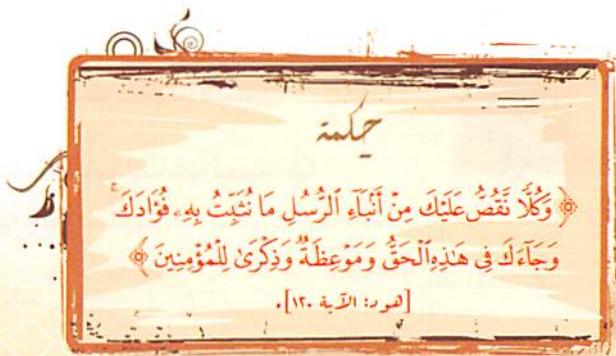 حكمة
﴿ وَكُلًّا نَّقُصُّ عَلَيْكَ مِنْ أَنۢبَآءِ ٱلرُّسُلِ مَا نُثَبِّتُ بِهِۦ فُؤَادَكَ ۚ
وَجَآءَكَ فِى هَـٰذِهِ ٱلْحَقُّ وَمَوْعِظَةٌ وَذِكْرَىٰ لِلْمُؤْمِنِينَ ﴾
[هود: الآية ١٢٠].